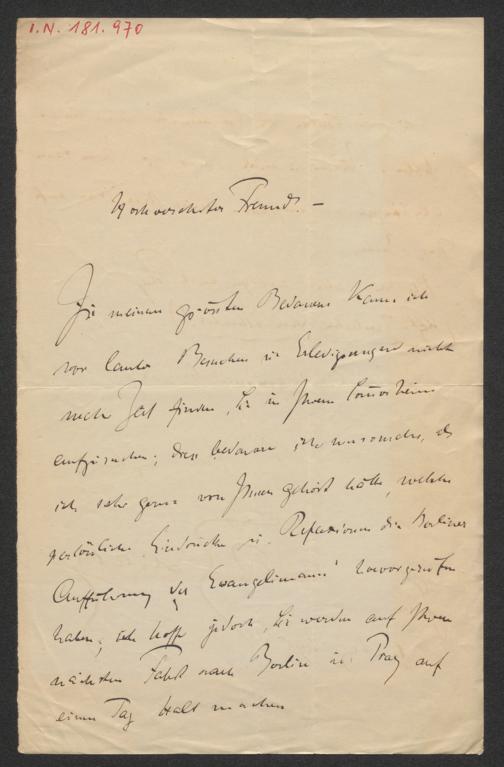 I.N. 181.970
Hochverehrter Freund! –
Zu meinem grössten Bedauern kann ich
vor lauter Besuchen u Erledigungen nicht
mehr Zeit finden, Sie in Ihrem
aufzusuchen; dies bedauere ich umsomehr, als
ich sehr gerne von Ihnen gehört hätte, welche
persönliche Eindrücke u. Reflexionen die Berliner
Aufführung des Evangelimann' hervorgerufen
haben; ich hoffe jedoch, Sie werden auf Ihrer
nächsten Fahrt nach Berlin in Prag auf
einen Tag Halt machen